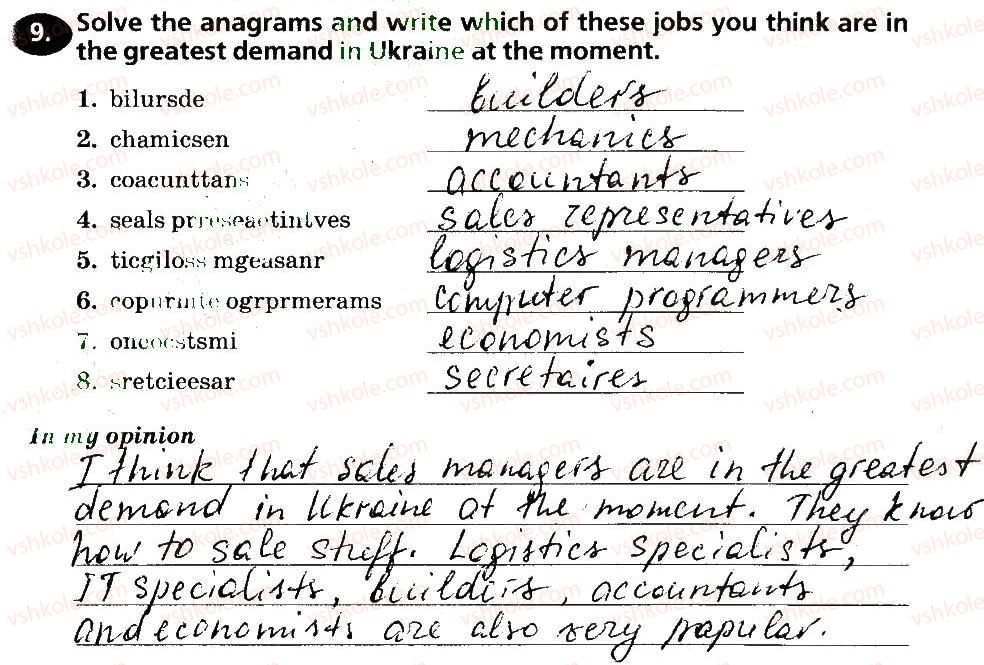 9. Solve the anagrams and write which of these jobs you think are in
the greatest demand in Ukraine at the moment.
1. bilursde builders
2. chamicsen mechanics
3. coacunttans accountants
4. seals prreseaetintves sales representatives
5. ticgiloss mgeasanr logistics managers
6. copurmte ogrprmerams computer programmers
7. oneocstsmi economists
8. sretcieesar secretaires
In my opinion
I think that sales managers are in the greatest
demand in Ukraine at the moment. They know
how to sale stuff. Logistics specialists,
IT specialists, builders, accountants
and economists are also very papular.